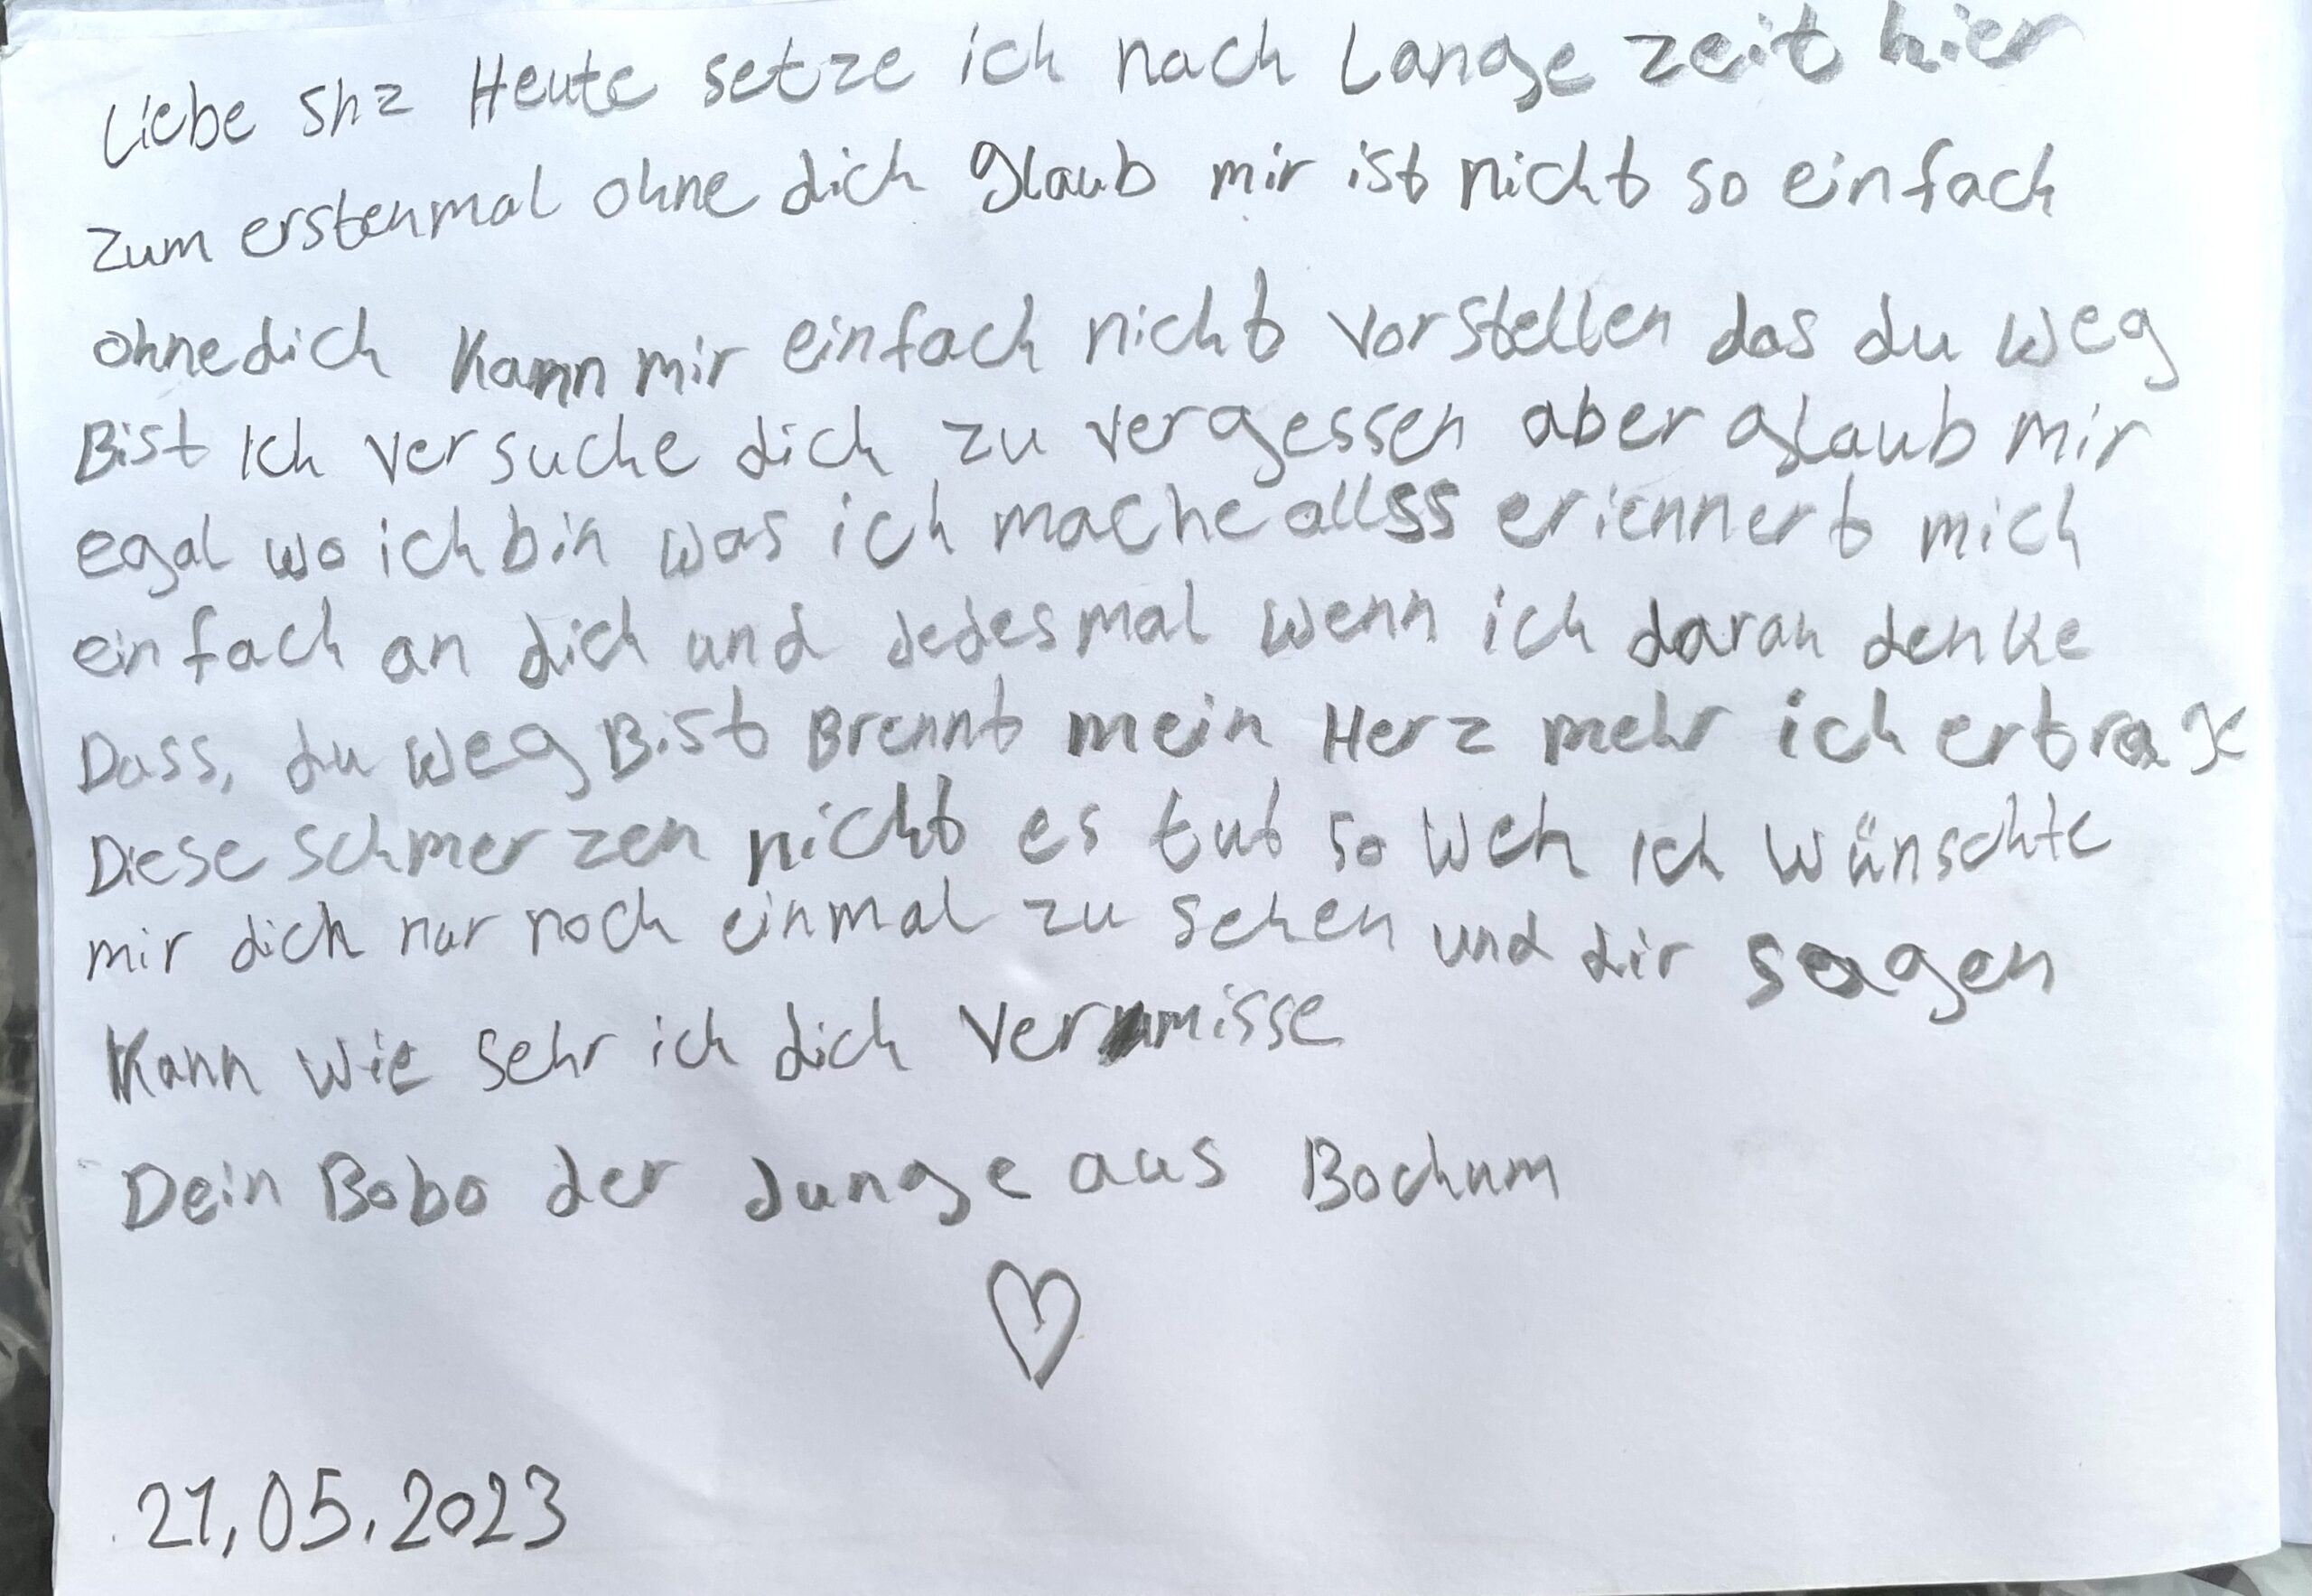 Liebe shz Heute setze ich nach Lange zeit hier
zum erstenmal ohne dich glaub mir ist nicht so einfach
ohnedich Kann mir einfach nicht vorstellen das du weg
Bist Ich versuche dich zu vergessen aber glaub mir
egal wo ich bin was ich mache allss eriennert mich
einfach an dich und Jedesmal wenn ich daran denke
Dass, du weg Bist Brennt mein Herz mehr ich ertrage
Diese schmerzen nicht es tut so weh Ich wünschte
mir dich nur noch einmal zu sehen und dir sagen
Kann wie sehr ich dich vermisse
Dein Bobo der Junge aus Bochum
21,05.2023